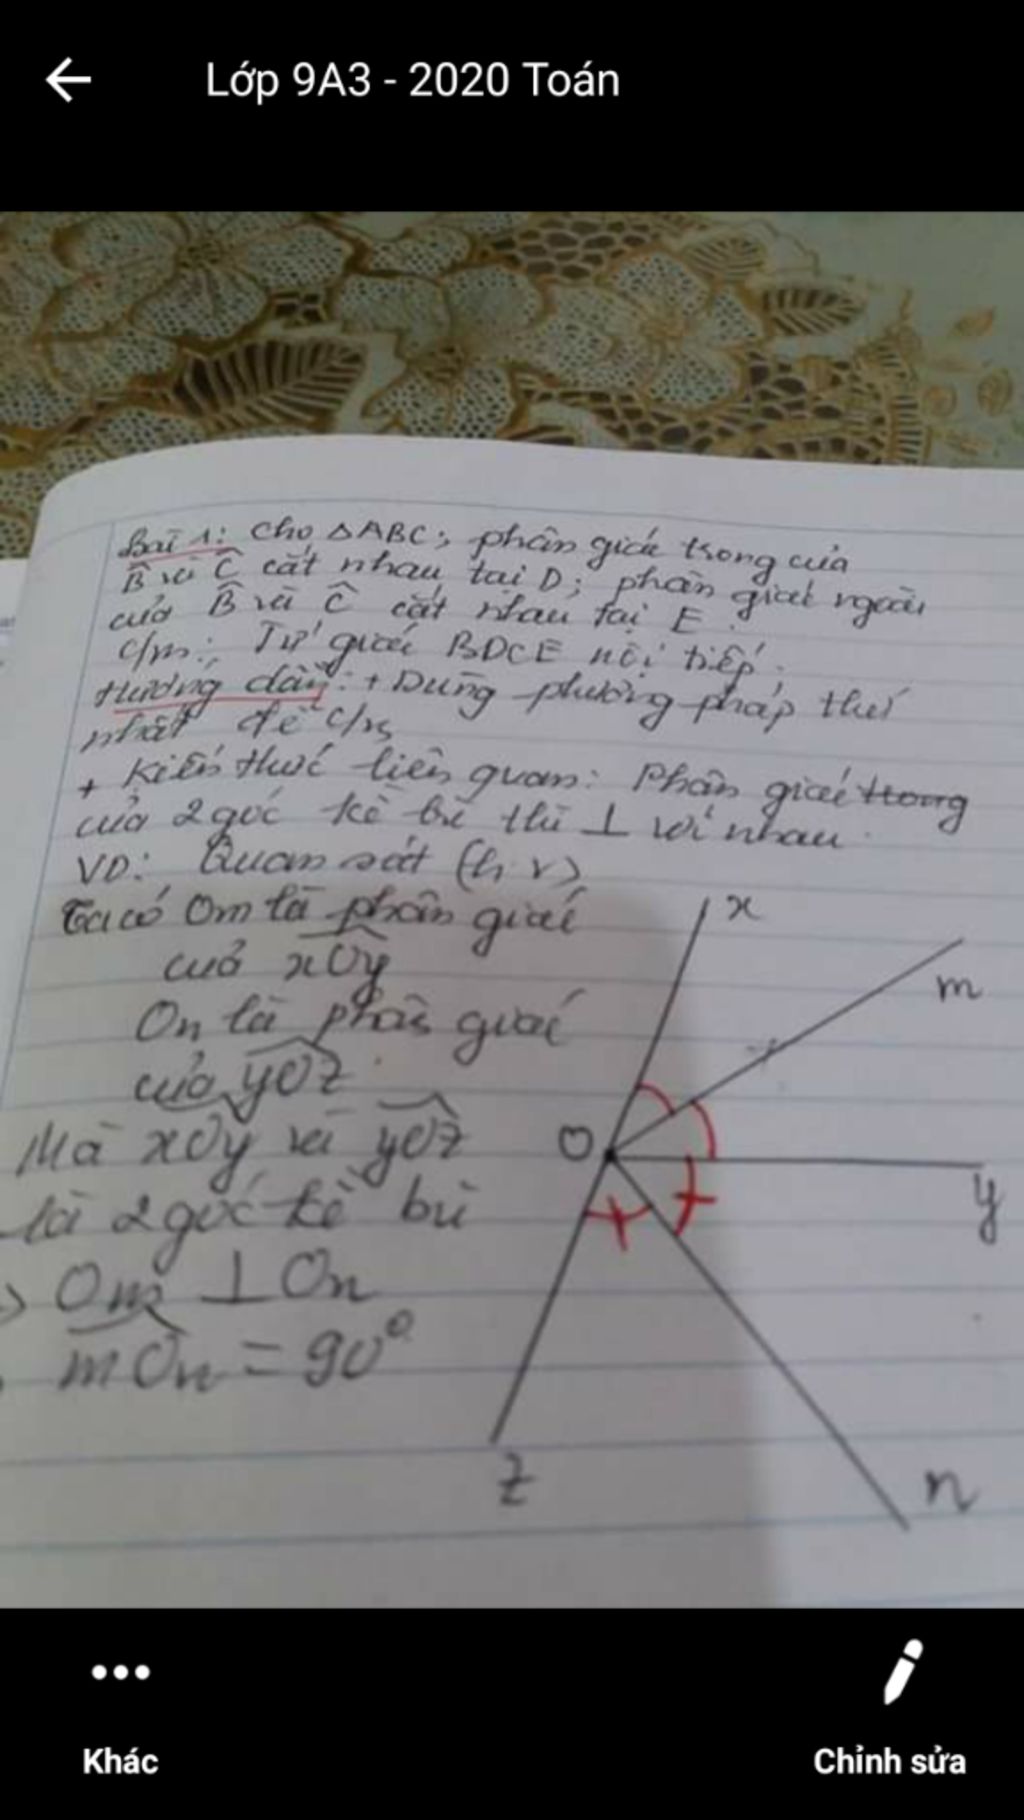 Lớp 9A3 - 2020 Toán
Bài 1: Cho △ABC; phân giác trong của
B̂ và Ĉ cắt nhau tại D; phân giác ngoài
của B̂ và Ĉ cắt nhau tại E.
C/m: Tứ giác BDCE nội tiếp.
Hướng dẫn: + Dùng phương pháp thứ
nhất để C/m
+ Kiến thức liên quan: Phân giác trong
của 2 góc kề bù thì ⊥ với nhau.
VD: Quan sát (h.v)
Ta có Om là phân giác
của xOy
On là phân giác
của yOz
Mà xOy và yOz
là 2 góc kề bù
Om ⊥ On
mOn = 90°
x
m
O
y
z
n
Khác
Chỉnh sửa